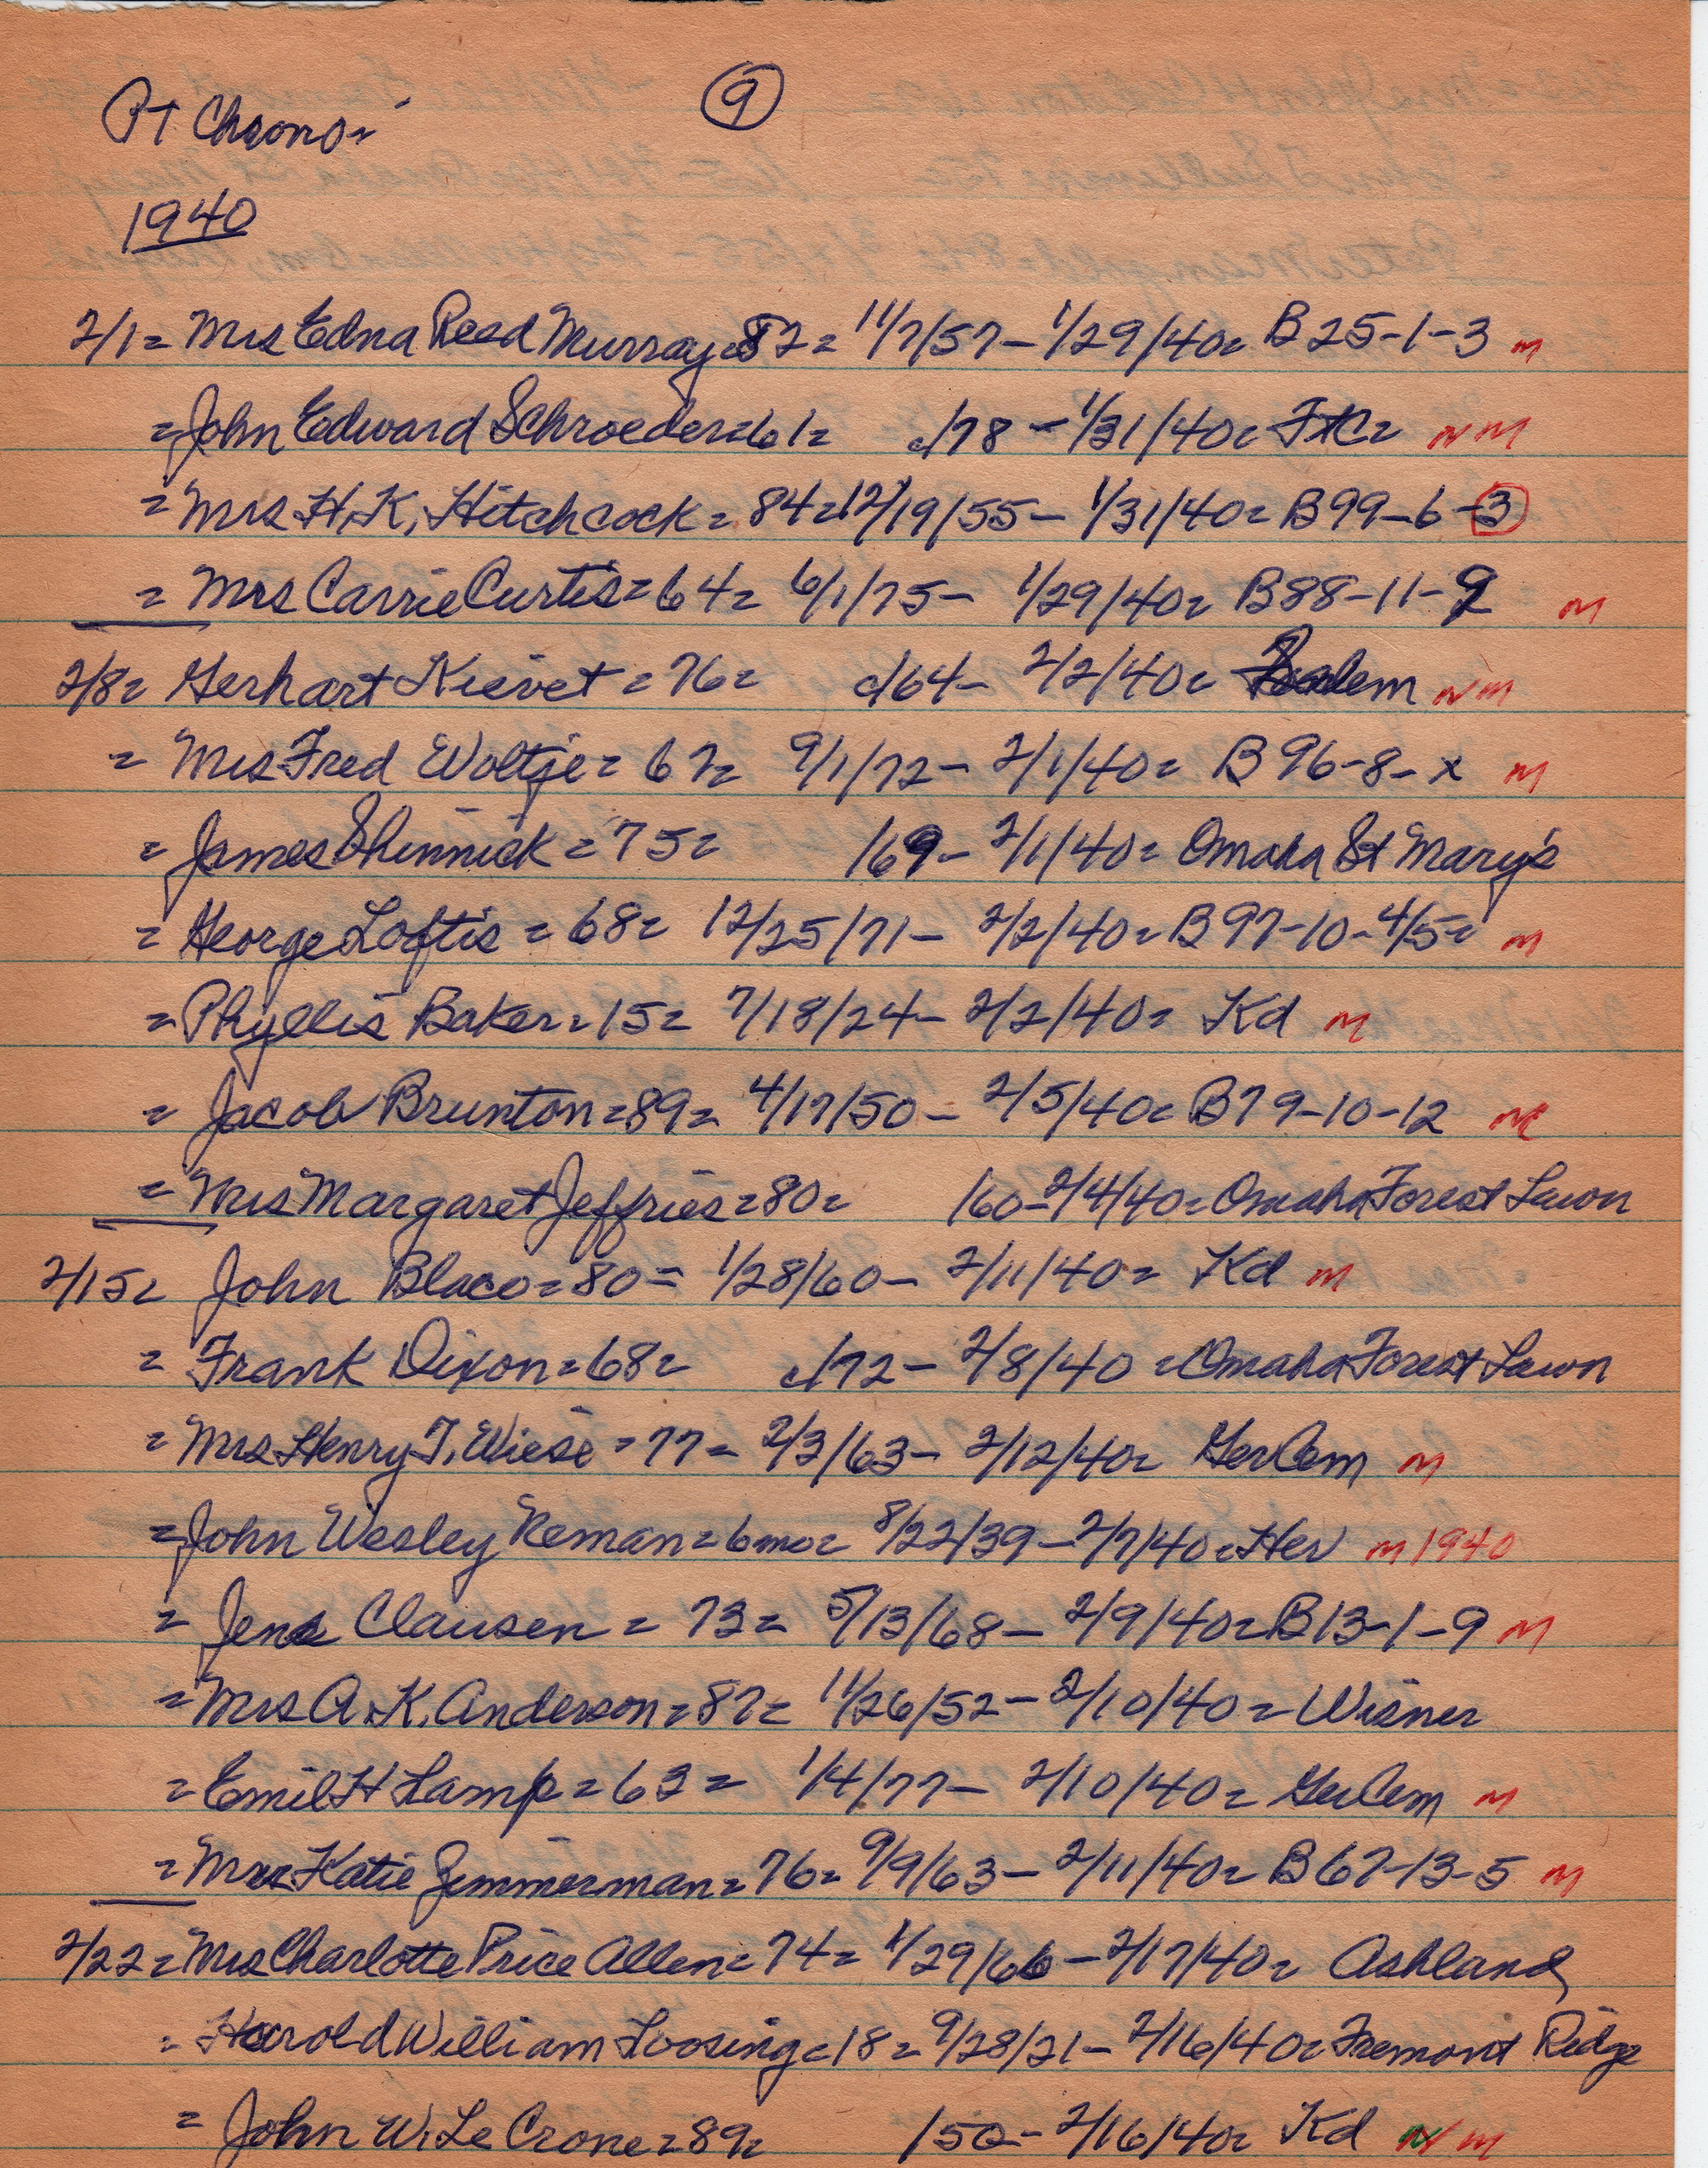 Pt Chrono=
9
1940
2/1= Mrs Edna Reed Murray=82= 11/7/57- 1/29/40= B 25-1-3 m
=John Edward Schroeder=61= c/78 - 1/31/40= FtC= NM
=Mrs H.K. Hitchcock= 84=12/19/55- 1/31/40= B99-6-3
= Mrs Carrie Curtis=64= 6/1/75- 1/29/40= B88-11-9 m
2/8= Gerhart Kievet=76= c/64- 2/2/40= Salem NM
= Mrs Fred Woltje= 67= 9/1/72- 2/1/40= B 96-8-x m
= James Shinnick=75= /69- 2/1/40= Omaha St Mary's
= George Loftis = 68= 12/25/71- 2/2/40= B97-10-4/5= m
= Phyllis Baker=15= 7/18/24- 2/2/40= Kd m
= Jacob Brunton=89= 4/17/50- 2/5/40= B79-10-12 m
= Mrs Margaret Jeffries=80= /60-2/4/40=Omaha Forest Lawn
2/15= John Blaco=80= 1/28/60- 2/11/40= Kd m
= Frank Dixon=68= c/72- 2/8/40 =Omaha Forest Lawn
=Mrs Henry T. Wiese =77= 2/3/63- 2/12/40= Ger Cem m
=John Wesley Neman=6mo= 8/22/39-2/7/40=Her m 1940
= Jens Clausen = 73= 5/13/68- 2/9/40=B13-1-9 m
=Mrs A.K. Anderson=87= 11/26/52-2/10/40= Wisner
=Emil H Lamp=63= 1/4/77- 2/10/40= Ger Cem m
=Mrs Katie Zimmerman=76= 9/9/63- 2/11/40= B67-13-5 m
2/22=Mrs Charlotte Price Allen=74= 1/29/66-2/17/40= Ashland
= Harold William Loosing=18= 9/28/21- 2/16/40= Fremont Ridge
= John W. Le Crone=89= /50- 2/16/40= Kd NM